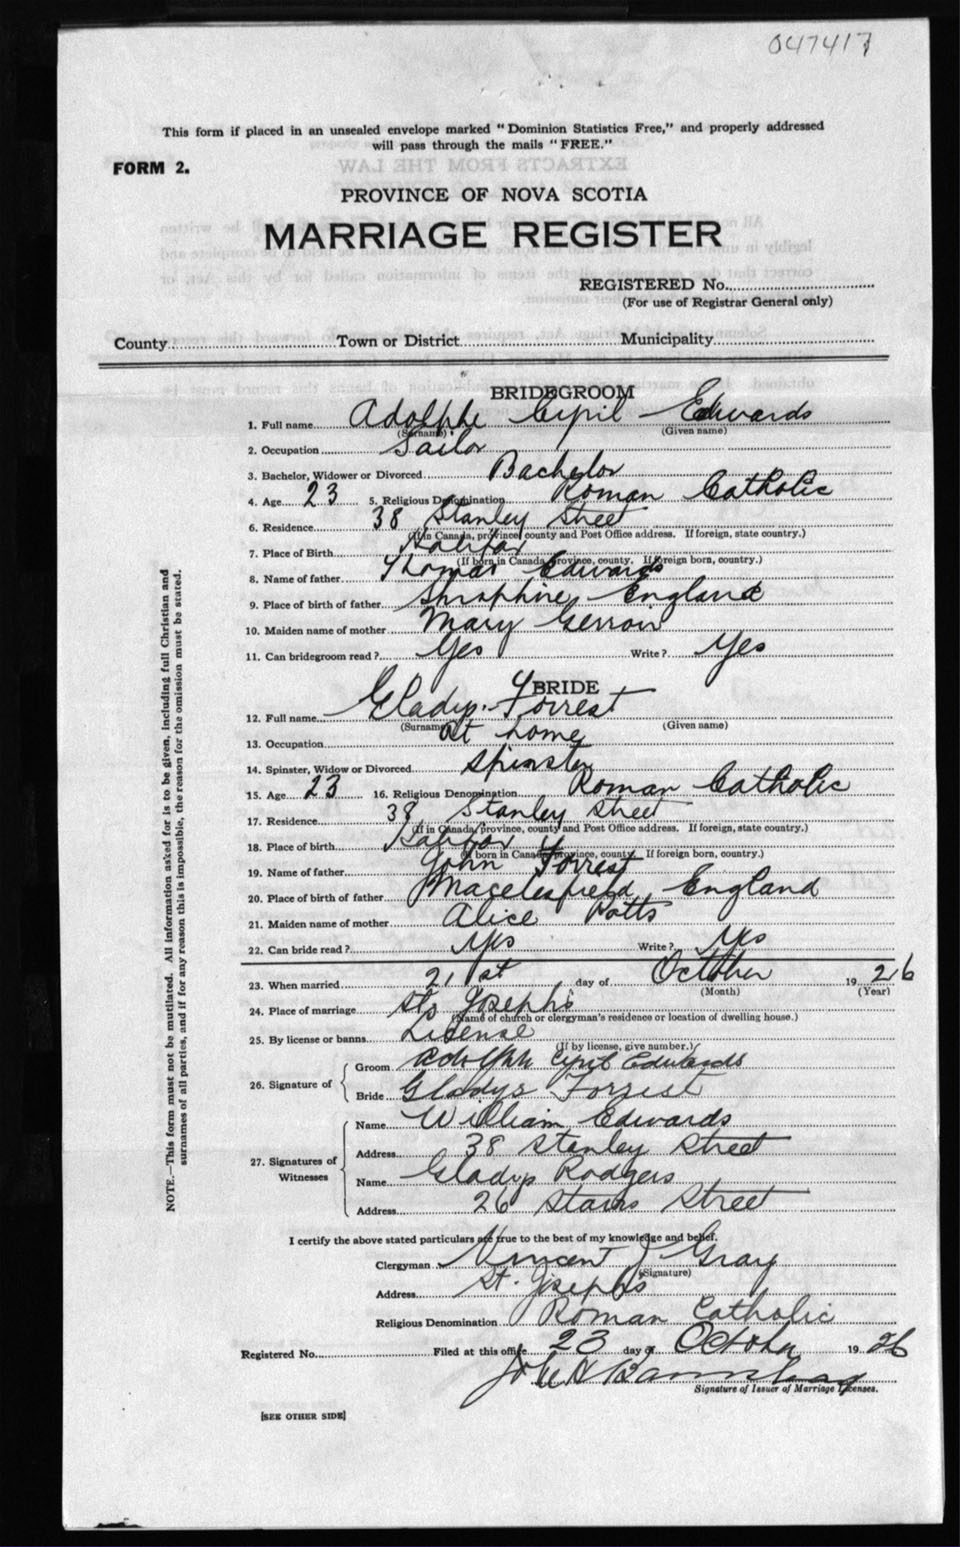 047417
This form if placed in an unsealed envelope marked "Dominion Statistics Free," and properly addressed
will pass through the mails "FREE."
FORM 2.
PROVINCE OF NOVA SCOTIA
MARRIAGE REGISTER
REGISTERED No.
(For use of Registrar General only)
County Town or District Municipality
BRIDEGROOM
1. Full name Adolphe Cyril Edwards
(Surname) (Given name)
2. Occupation Sailor
3. Bachelor, Widower or Divorced Bachelor
4. Age 23 5. Religious Denomination Roman Catholic
6. Residence 38 Stanley Street
(If in Canada, province, county and Post Office address. If foreign, state country.)
7. Place of Birth Halifax
(If born in Canada, province, county. If foreign born, country.)
8. Name of father Thomas Edwards
9. Place of birth of father Shropshire England
10. Maiden name of mother Mary
11. Can bridegroom read? Yes Write? Yes
BRIDE
12. Full name Gladys Forrest
(Surname) (Given name)
13. Occupation At home
14. Spinster, Widow or Divorced Spinster
15. Age 23 16. Religious Denomination Roman Catholic
17. Residence 38 Stanley Street
(If in Canada, province, county and Post Office address. If foreign, state country.)
18. Place of birth Halifax
(If born in Canada, province, county. If foreign born, country.)
19. Name of father John Forrest
20. Place of birth of father Maccelesfield England
21. Maiden name of mother Alice Potts
22. Can bride read? Yes Write? Yes
23. When married 21st day of October 1926
(Month) (Year)
24. Place of marriage St. Joseph's
(Name of church or clergyman's residence or location of dwelling house.)
25. By license or banns License
(If by license, give number.)
26. Signature of Groom Adolphe Cyril Edwards
Bride Gladys Forrest
27. Signatures of Witnesses
Name William Edwards
Address 38 Stanley Street
Name Gladys Rodgers
Address 26 Stairs Street
I certify the above stated particulars are true to the best of my knowledge and belief.
Clergyman Vincent J Gray
(Signature)
Address St. Josephs
Religious Denomination Roman Catholic
Registered No. Filed at this office 23 day of October 1926
Signature of Issuer of Marriage Licenses.
[SEE OTHER SIDE]
NOTE.—This form must not be mutilated. All information asked for is to be given, including full Christian and
surnames of all parties, and if for any reason this is impossible, the reason for the omission must be stated.